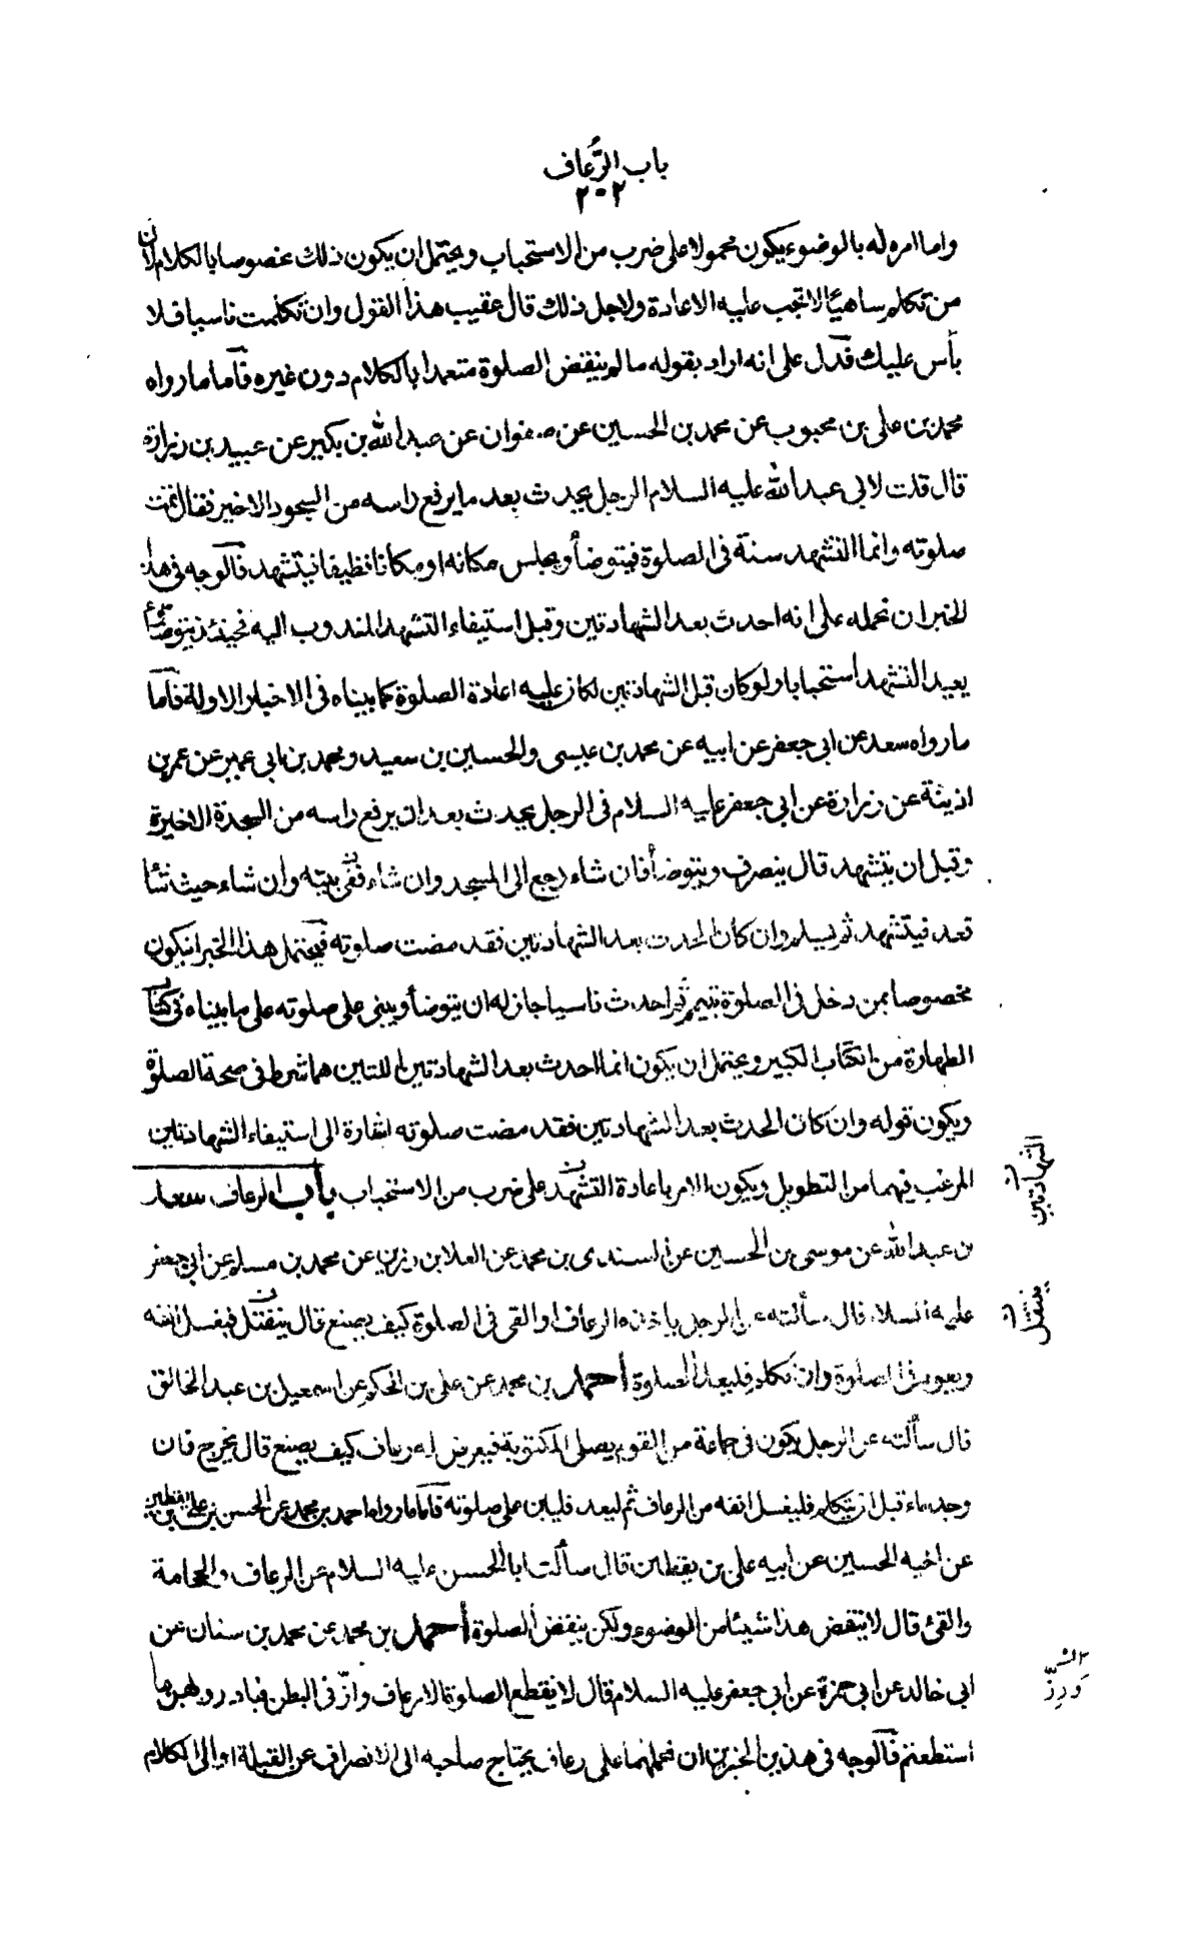 باب الرُّعاف
٢٠٢
واما امره له بالوضوء يكون محمولا على ضرب من الاستحباب ويحتمل ان يكون ذلك مخصوصا بالكلام لان
من تكلم ساهيا لا تجب عليه الاعادة ولاجل ذلك قال عقيب هذا القول وان تكلمت ناسيا فلا
بأس عليك فدل على انه اراد بقوله ما لم ينقض الصلوة متعمدا بالكلام دون غيره فآما ما رواه
محمد بن على بن محبوب عن محمد بن الحسين عن صفوان عن عبد الله بن بكير عن عبيد بن زرارة
قال قلت لابى عبد الله عليه السلام الرجل يحدث بعد ما يرفع راسه من السجود الاخير فقال تمت
صلوته وانما التشهد سنة فى الصلوة فيتوضأ ويجلس مكانه او مكانا نظيفا فيتشهد فآلوجه فى هذا
الخبر ان نحمله على انه احدث بعد الشهادتين وقبل استيفاء التشهد المندوب اليه فحينئذ يتوضأ و
يعيد التشهد استحبابا ولو كان قبل الشهادتين لكان عليه اعادة الصلوة كما بيناه فى الاخبار الاولة فآما
ما رواه سعد عن ابى جعفر عن ابيه عن محمد بن عيسى والحسين بن سعيد ومحمد بن ابى عمير عن عمر بن
اذينة عن زرارة عن ابى جعفر عليه السلام فى الرجل يحدث بعد ان يرفع راسه من السجدة الاخيرة
وقبل ان يتشهد قال ينصرف ويتوضأ فان شاء رجع الى المسجد وان شاء ففى بيته وان شاء حيث شاء
قعد فيتشهد ثم يسلم وان كان الحدث بعد الشهادتين فقد مضت صلوته فيحتمل هذا الخبر ان يكون
مخصوصا بمن دخل فى الصلوة بتيمم ثم احدث ناسيا جاز له ان يتوضأ ويبنى على صلوته على ما بيناه فى كتاب
الطهارة من الكتاب الكبير ويحتمل ان يكون انما احدث بعد الشهادتين اللتين هما شرط فى صحة الصلوة
ويكون قوله وان كان الحدث بعد الشهادتين فقد مضت صلوته اشارة الى استيفاء الشهادتين
المرغب فيهما من التطويل ويكون الامر باعادة التشهد على ضرب من الاستحباب باب الرعاف سعد
بن عبد الله عن موسى بن الحسين عن السندى بن محمد عن العلا بن رزين عن محمد بن مسلم عن ابى جعفر
عليه السلام قال سألته عن الرجل ياخذه الرعاف او القى فى الصلوة كيف يصنع قال ينفتل فيغسل انفه
ويعود فى الصلوة وان تكلم فليعد الصلوة أحمد بن محمد عن على بن الحكم عن اسمعيل بن عبد الخالق
قال سألته عن الرجل يكون فى جماعة من القوم يصلى المكتوبة فيعرض له رعاف كيف يصنع قال يخرج فان
وجد ماء قبل ان يتكلم فليغسل انفه من الرعاف ثم ليعد فليبن على صلوته فآما ما رواه احمد بن محمد عن الحسن بن على بن يقطين
عن اخيه الحسين عن ابيه على بن يقطين قال سألت ابا الحسن عليه السلام عن الرعاف والحجامة
والقئ قال لا ينقض هذا شيئا من الوضوء ولكن ينقض الصلوة أحمد بن محمد عن محمد بن سنان عن
ابى خالد عن ابى حمزة عن ابى جعفر عليه السلام قال لا يقطع الصلوة الا رعاف وازّ فى البطن فبادروا بهن ما
استطعتم فآلوجه فى هذين الخبرين ان نحملهما على رعاف يحتاج صاحبه الى الانصراف عن القبلة او الى الكلام
الشهادتين
ينفتل
ورزّ